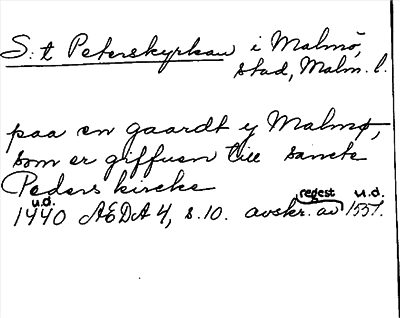 S:t Peterskyrkan i Malmö,
stad, Malm. l.
paa en gaardt y Malmø,
som er giffuen till sancte
Peders kircke
regest u.d.
u.d.
1440 AEDA 4, s. 10. avskr. av 1557.